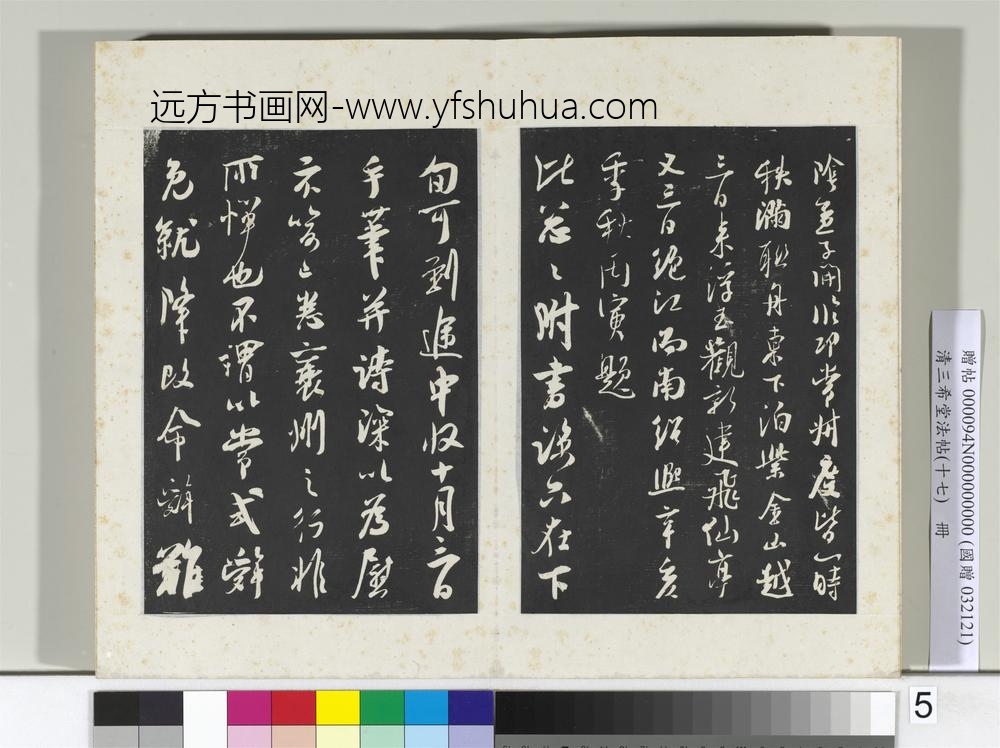 远方书画网-www.yfshuhua.com
陰 子開 常州度皆一時
秩滿聯舟東下泊紫金山越
三日來浮玉觀新建飛仙亭
又三日絕江而南紹興辛亥
季秋丙寅題
比忽〻附書 六在下
旬可到遞中收十月 日
手筆并詩深以為慰
示 襄州之行非
所憚也不謂以常式辭
免就降改命辭難
贈帖 000094N000000000 (國贈 032121)
清三希堂法帖(十七) 冊
5